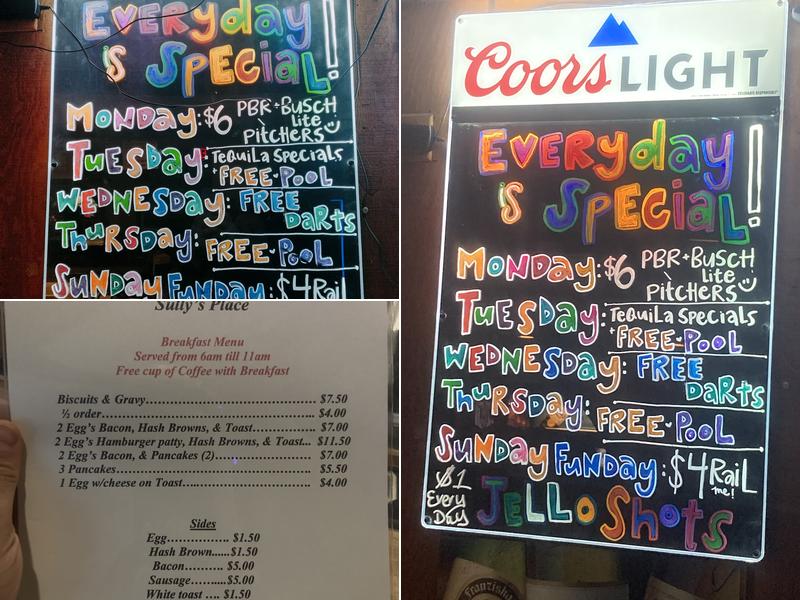 EVERYday
is SPECial!
MONDAY: $6 PBR + BUSCH
Lite
PitCHERS
TUESDAY: TEQUILA SPECIALS
+ FREE POOL
WEDNESDAY: FREE
DARTS
THURSDAY: FREE POOL
SUNDAY FUNDAY: $4 Rail
Sully's Place
Breakfast Menu
Served from 6am till 11am
Free cup of Coffee with Breakfast
Biscuits & Gravy.......................................... $7.50
½ order..................................................... $4.00
2 Egg's Bacon, Hash Browns, & Toast...................... $7.00
2 Egg's Hamburger patty, Hash Browns, & Toast... $11.50
2 Egg's Bacon, & Pancakes (2)............................ $7.00
3 Pancakes................................................. $5.50
1 Egg w/cheese on Toast................................... $4.00
Sides
Egg................ $1.50
Hash Brown......$1.50
Bacon.......... $5.00
Sausage.........$5.00
White toast .... $1.50
Coors LIGHT
EVERYday
is SPECial!
MONDAY: $6 PBR + BUSCH
Lite
PitCHERS
TUESDAY: TEQUILA SPECIALS
+ FREE POOL
WEDNESDAY: FREE
DARTS
THURSDAY: FREE POOL
SUNDAY FUNDAY: $4 Rail
me!
$1
Every
Day
JELLO SHOTS